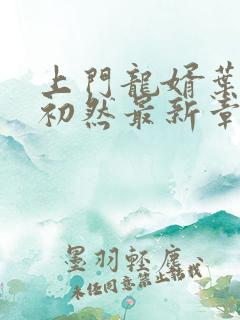 上門龍婿葉
初然最新章
墨羽輕塵、
未任同意禁止轉載